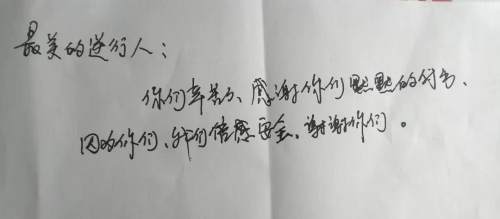 最美的逆行人：
你们辛苦了、感谢你们默默的付出、
因为你们、我们倍感安全、谢谢你们。